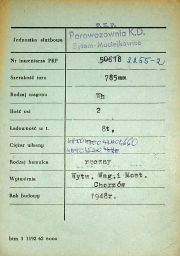 P.K.P.
Jednostka służbowa
Parowozownia K.D.
Bytom-Maciejkowice
Nr inwentarza PKP 50678 2255-2
Szerokość toru 785mm
Rodzaj wagonu Wh
Ilość osi 2
Ładowność w t. 8t,
Ciężar własny
Rodzaj hamulca ręczny
Wytwórnia Wytw. Wag. i Most.
Chorzów
Rok budowy 1948r.